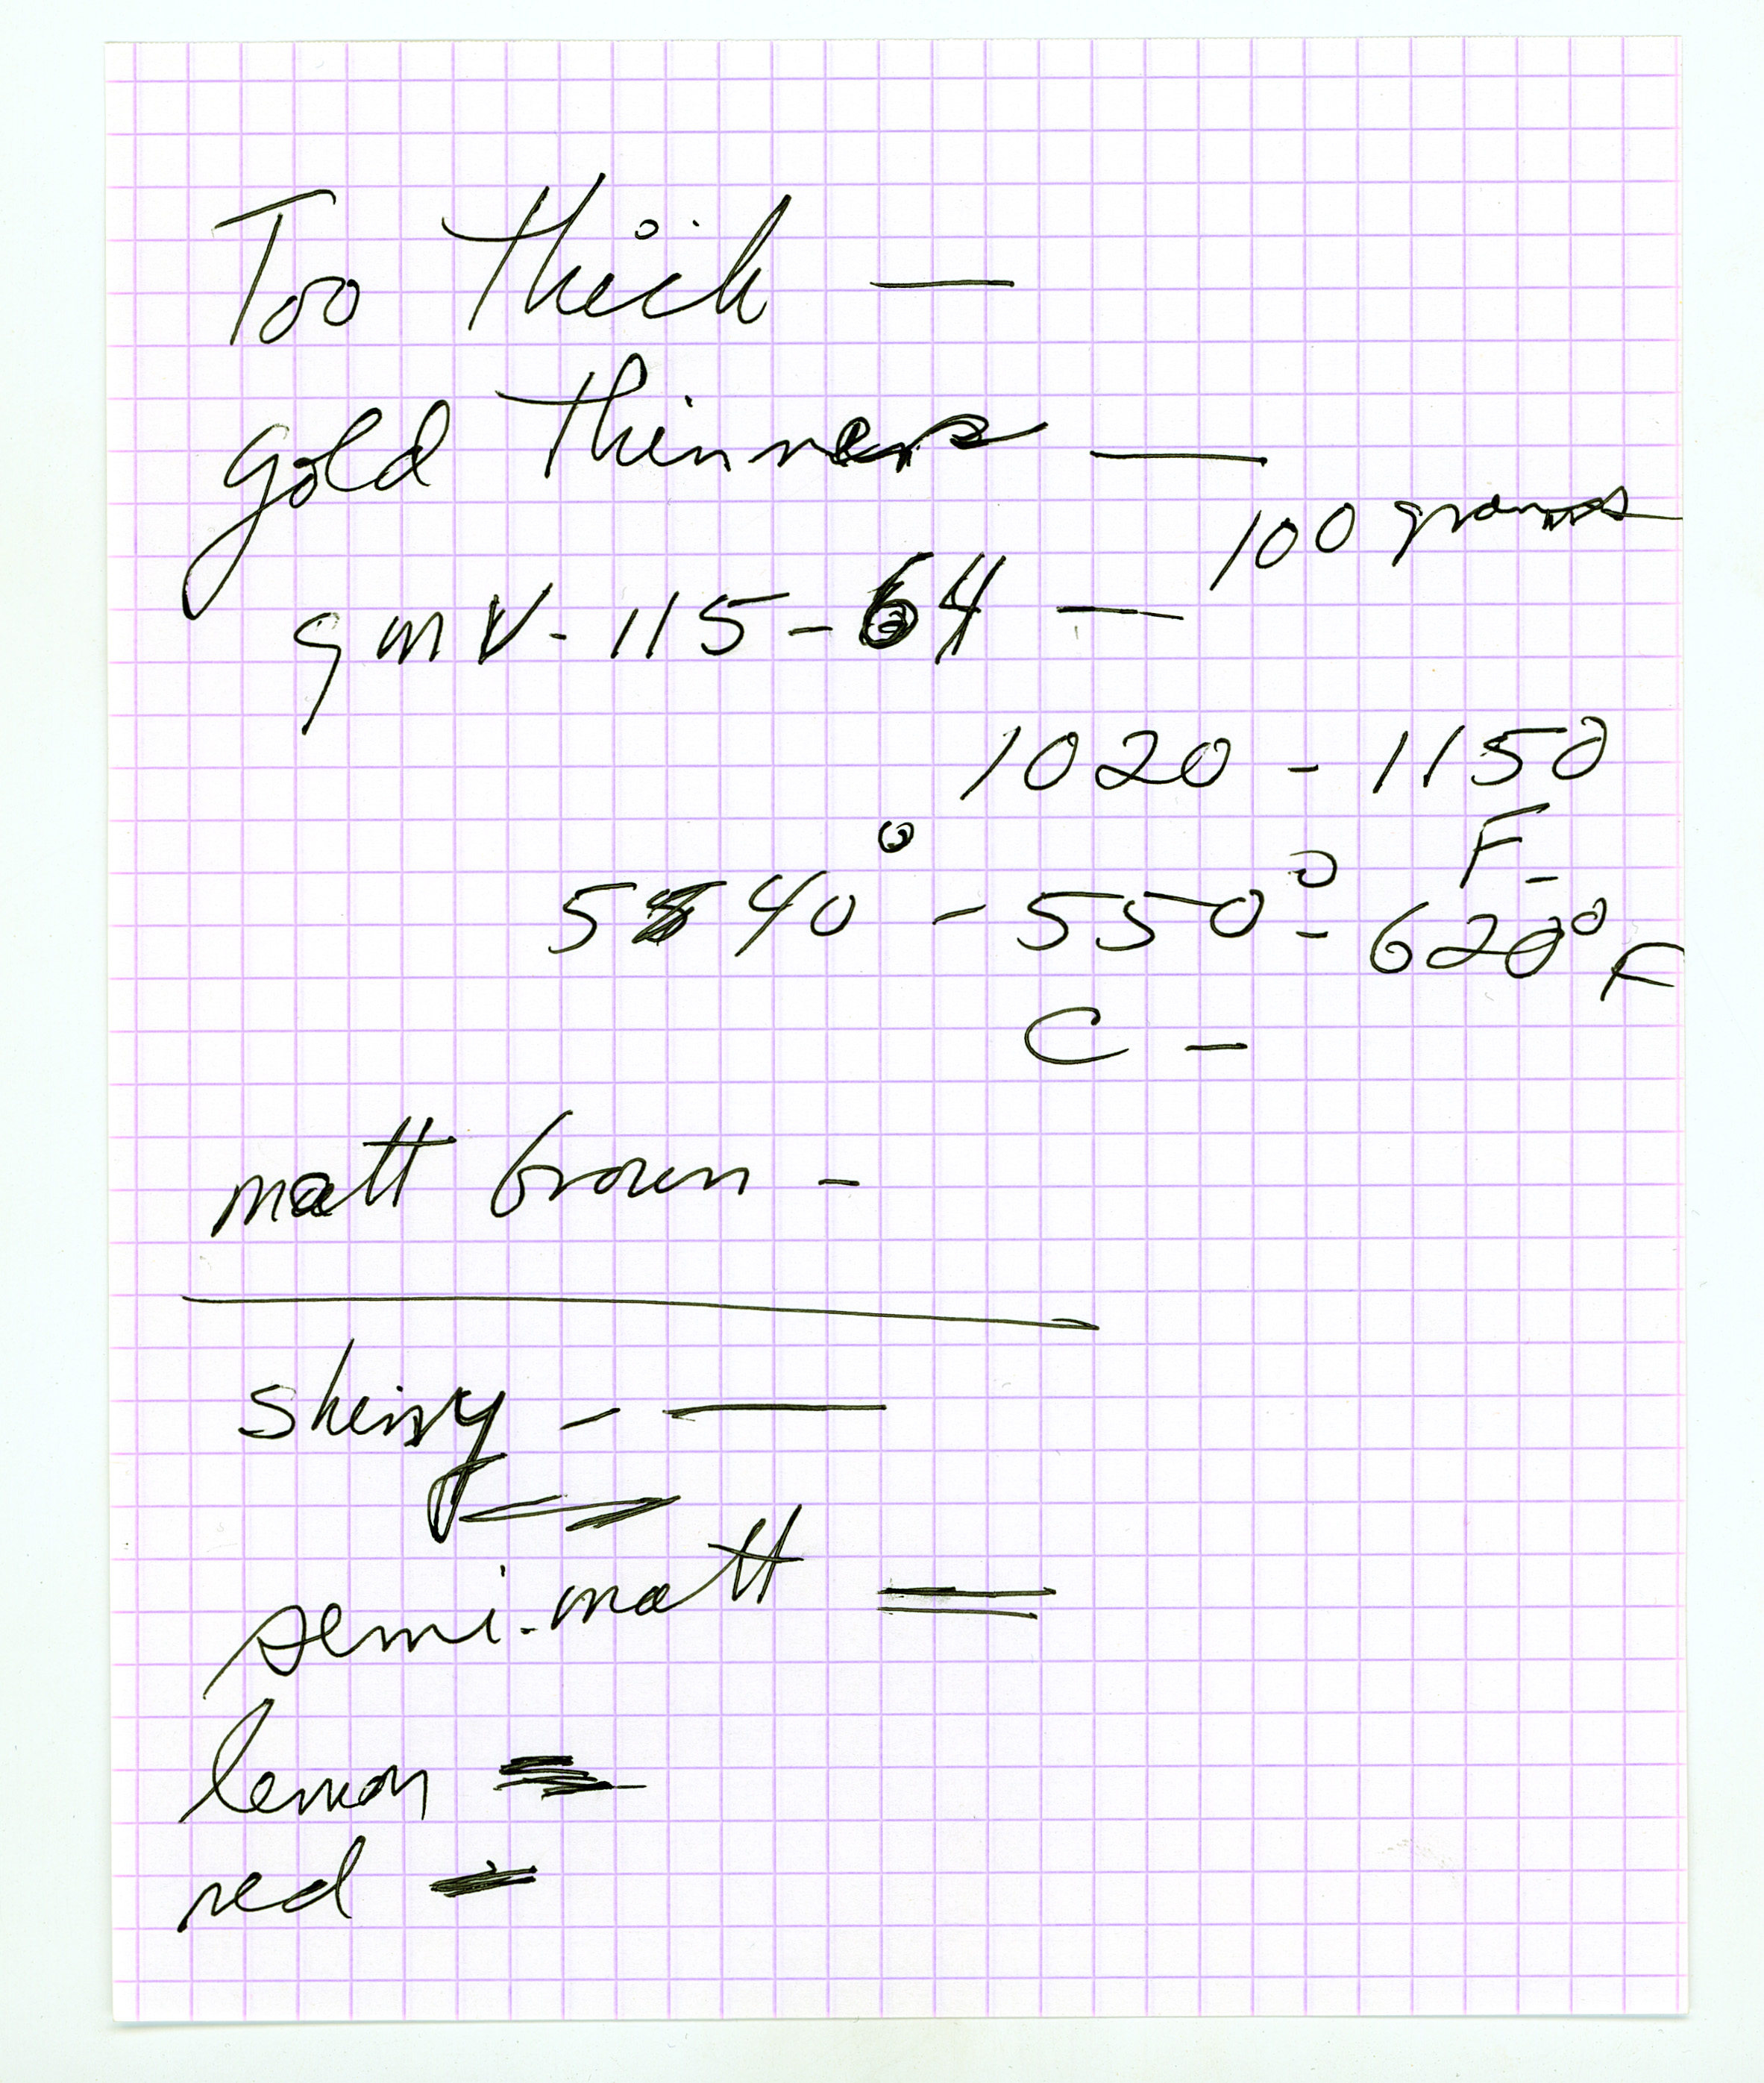 Too thick —
gold thinner —
100 grams
gmV-115-64 —
1020 - 1150
F-
540° - 550° - 620° F
C -
matt brown -
shiny -
semi-matt =
lemon
red -